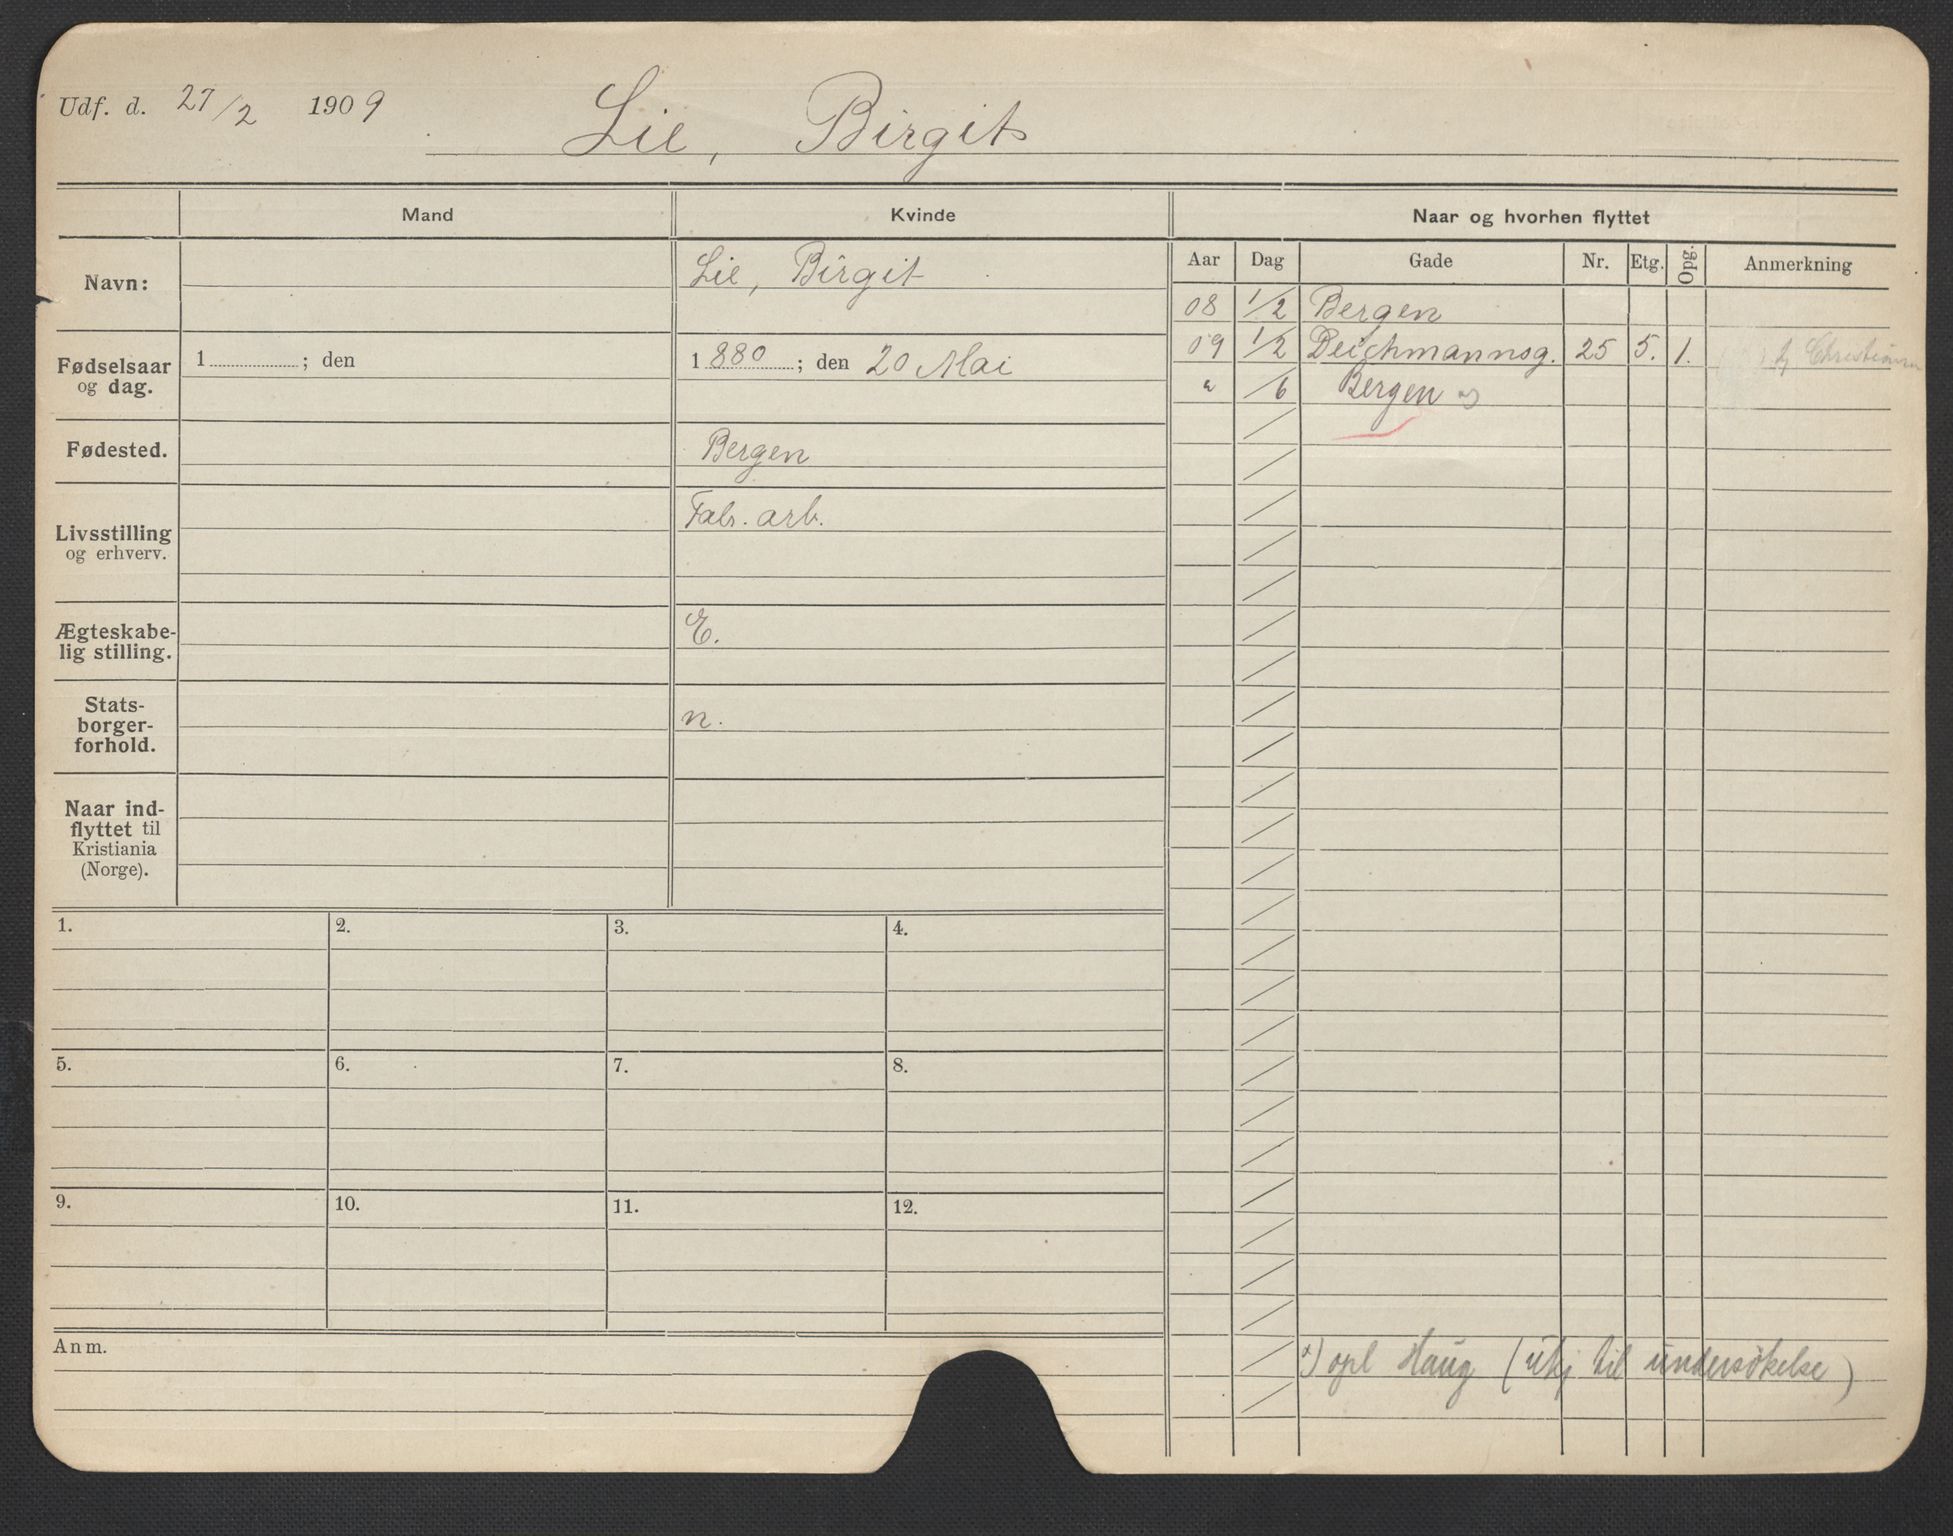 Udf. d. 27/2 1909 Lie, Birgit
Mand Kvinde Naar og hvorhen flyttet
Aar Dag Gade Nr. Etg. Opg. Anmerkning
Navn: Lie, Birgit
08 1/2 Bergen
09 1/2 Deichmannsg. 25 5. 1.
" /6 Bergen
Fødselsaar
og dag.
1 ; den 1880 ; den 20 Mai
Fødested. Bergen
Livsstilling
og erhverv.
Fabr. arb.
Ægteskabe-
lig stilling.
E.
Stats-
borger-
forhold.
n.
Naar ind-
flyttet til
Kristiania
(Norge).
1. 2. 3. 4.
5. 6. 7. 8.
9. 10. 11. 12.
Anm.
opl Haug ( til undersøkelse )